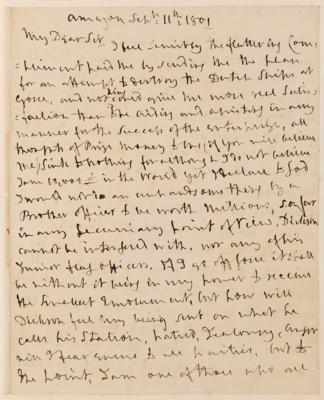 Amazon Sept: 11th 1801
My Dear Sir I feel sensibly the flattering Com
pliment paid me by sending me the plan
for an attempt to destroy the Dutch Ships at
Goree, and nothing could give me more real Satis-
faction than the aiding and assisting in any
manner for the success of the enterprize, all
thoughts of Prize Money to me, if you will believe
me, sink to nothing for although I do not believe
I am 10,000£ in the World yet I declare to God
I would not do an unhandsome thing by a
Brother officer to be worth Millions, so far
in any pecuniary point of View, Dickson
cannot be interfered with, nor any of his
Junior flag officers. If I go off Goree it shall
be without it being in my power to receive
the smallest Emolument, but how will
Dickson feel my being sent on what he
calls his Station, hatred, Jealousy, anger
will I fear ensue to all parties, but to
the point, I am one of those who are